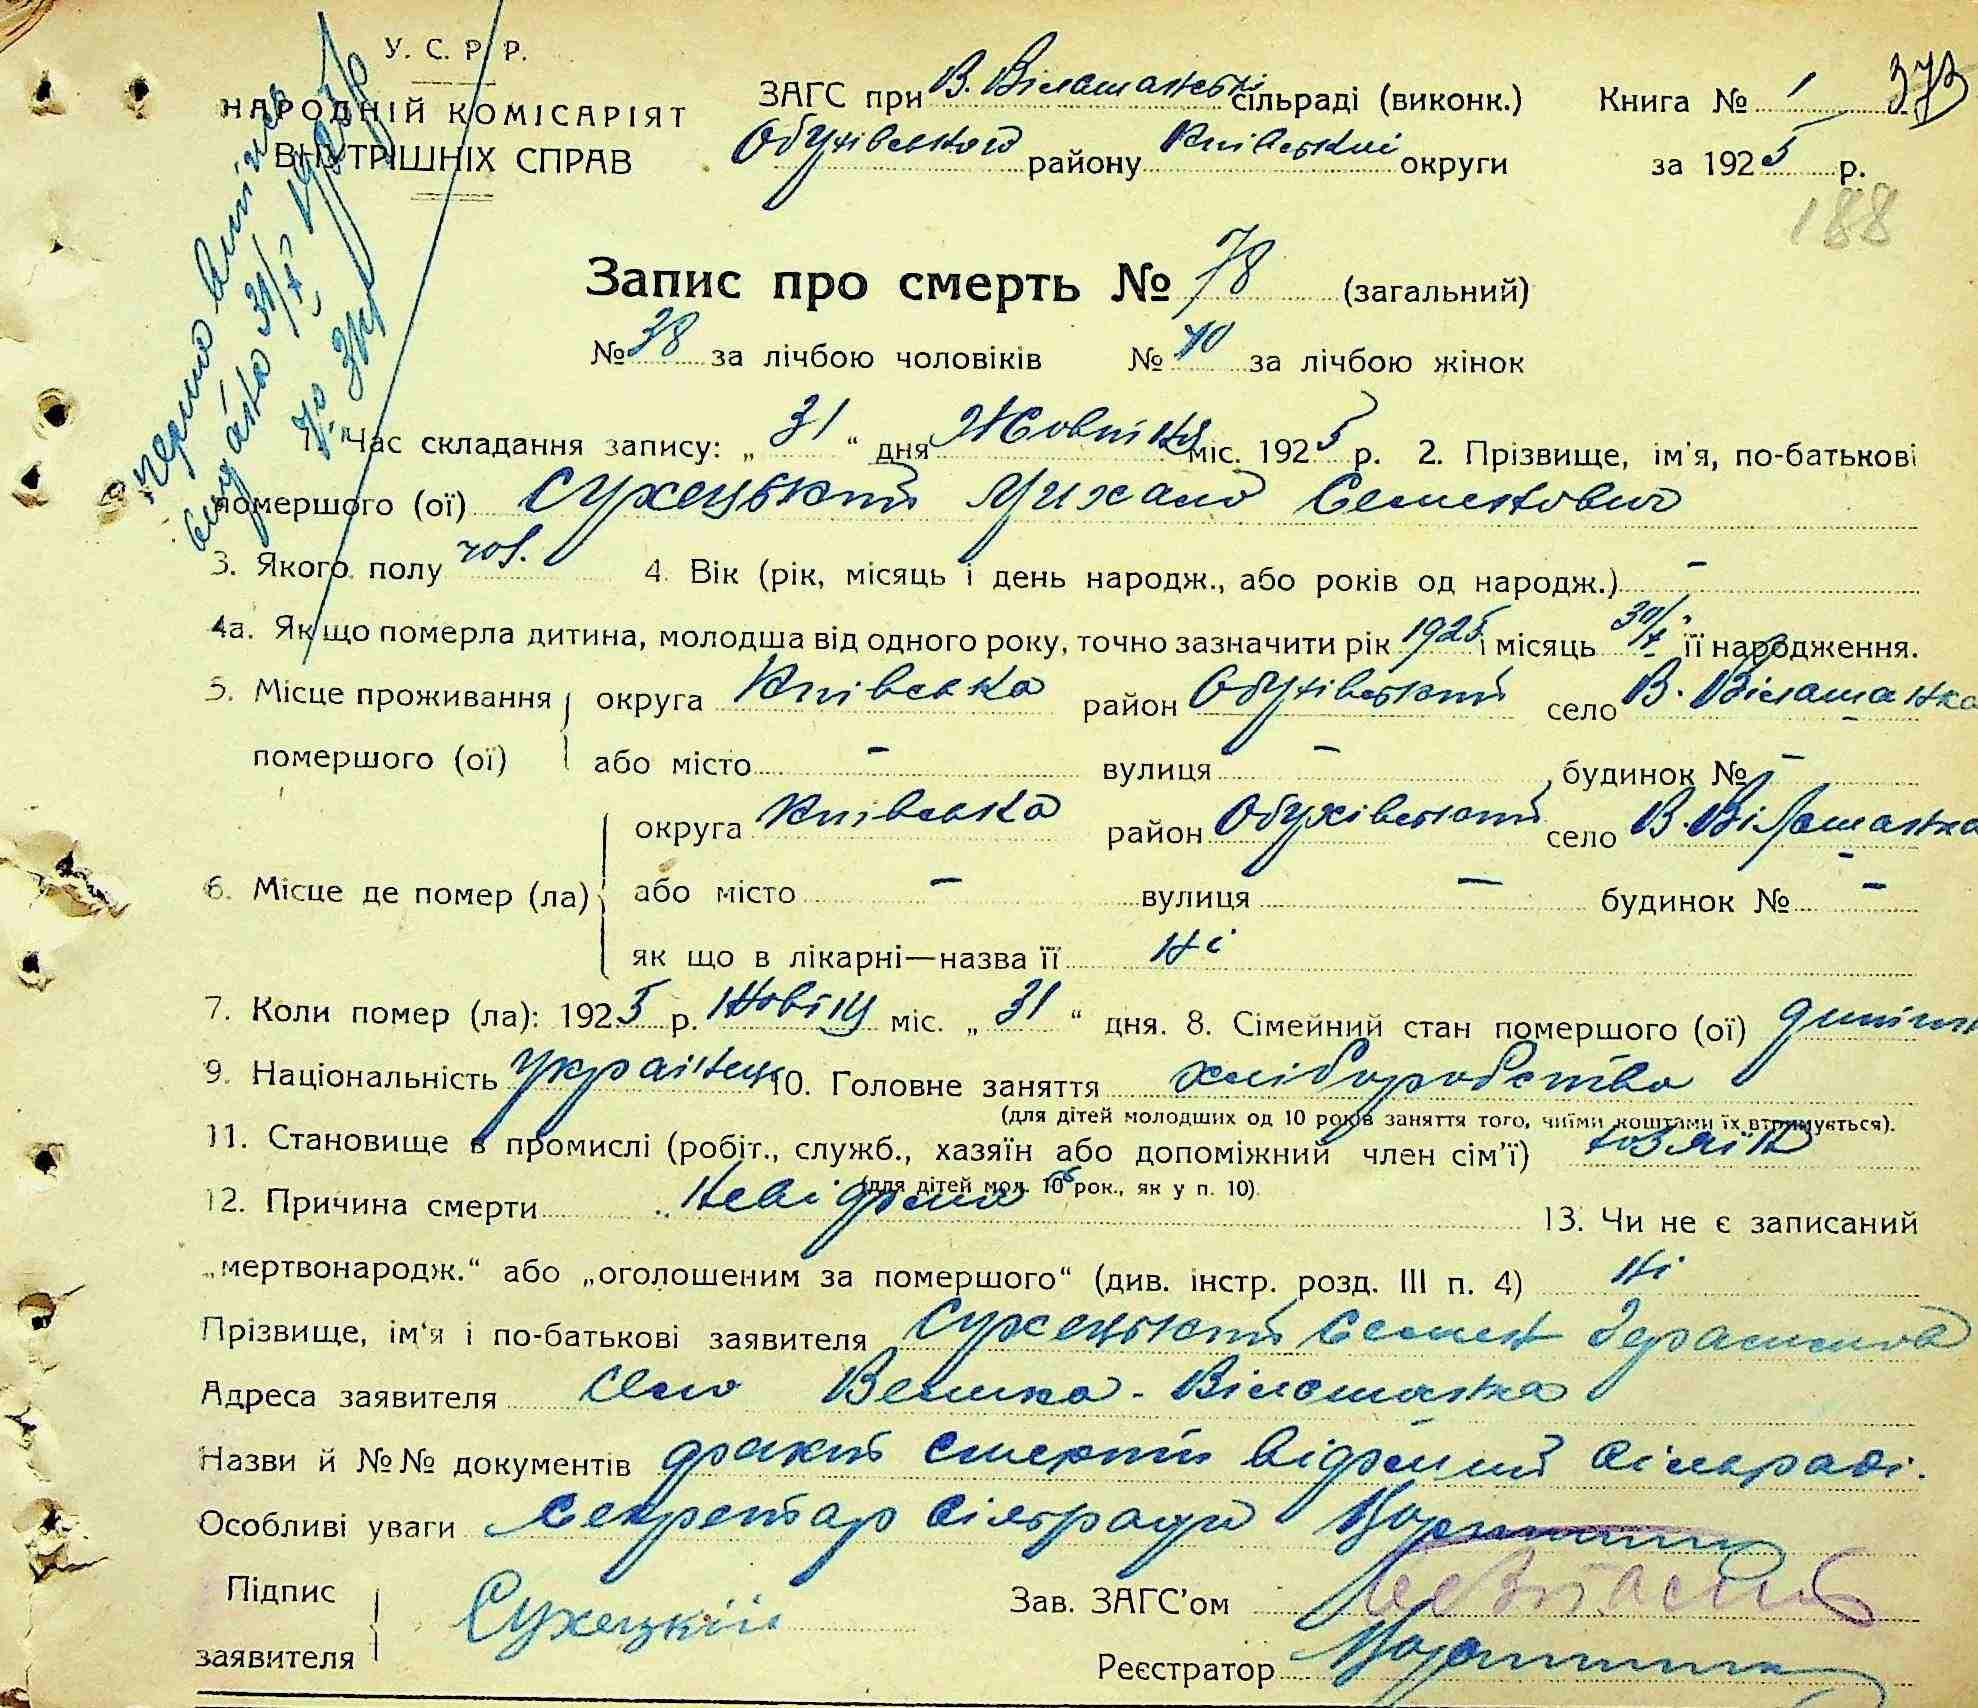 У. С. Р. Р.
НАРОДНІЙ КОМІСАРІЯТ
ВНУТРІШНІХ СПРАВ
ЗАГС при В. Вільшанській сільраді (виконк.)
Обухівського району Київської округи
Книга № 1
373
за 1925 р.
188
Запис про смерть № 78 (загальний)
№ 38 за лічбою чоловіків № 40 за лічбою жінок
1. Час складання запису: „ 31 “ дня Жовтня міс. 1925 р. 2. Прізвище, ім'я, по-батькові
помершого (ої) Сухецький Михайло Семенович
3. Якого полу чол. 4. Вік (рік, місяць і день народж., або років од народж.) -
4а. Як що померла дитина, молодша від одного року, точно зазначити рік 1925 і місяць 30/X її народження.
5. Місце проживання округа Київська район Обухівський село В. Вільшанка
помершого (ої) або місто - вулиця - будинок № -
округа Київська район Обухівський село В. Вільшанка
6. Місце де помер (ла) або місто - вулиця - будинок № -
як що в лікарні—назва її ні
7. Коли помер (ла): 1925 р. Жовтня міс. „ 31 “ дня. 8. Сімейний стан помершого (ої)
9. Національність Українець 10. Головне заняття хліборобство
(для дітей молодших од 10 років заняття того, чиїми коштами їх втримується).
11. Становище в промислі (робіт., служб., хазяїн або допоміжний член сім'ї) хозяїн
(для дітей мол. 10 рок., як у п. 10).
12. Причина смерти невідома 13. Чи не є записаний
„мертвонародж.“ або „оголошеним за помершого“ (див. інстр. розд. III п. 4) ні
Прізвище, ім'я і по-батькові заявителя Сухецький Семен Герасимов
Адреса заявителя село Велика-Вільшанка
Назви й №№ документів факт смерти відомий сільраді.
Особливі уваги Секретар сільради
Підпис
заявителя Сухецкий
Зав. ЗАГС'ом
Реєстратор